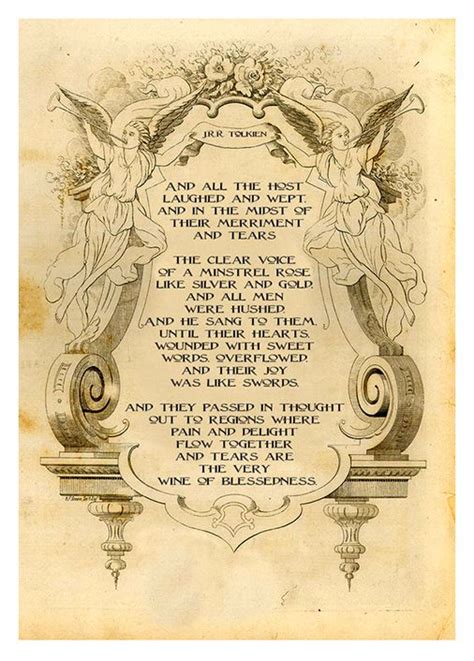 J.R.R. TOLKIEN
AND ALL THE HOST
LAUGHED AND WEPT,
AND IN THE MIDST OF
THEIR MERRIMENT
AND TEARS
THE CLEAR VOICE
OF A MINSTREL ROSE
LIKE SILVER AND GOLD,
AND ALL MEN
WERE HUSHED.
AND HE SANG TO THEM,
UNTIL THEIR HEARTS,
WOUNDED WITH SWEET
WORDS, OVERFLOWED,
AND THEIR JOY
WAS LIKE SWORDS,
AND THEY PASSED IN THOUGHT
OUT TO REGIONS WHERE
PAIN AND DELIGHT
FLOW TOGETHER
AND TEARS ARE
THE VERY
WINE OF BLESSEDNESS.